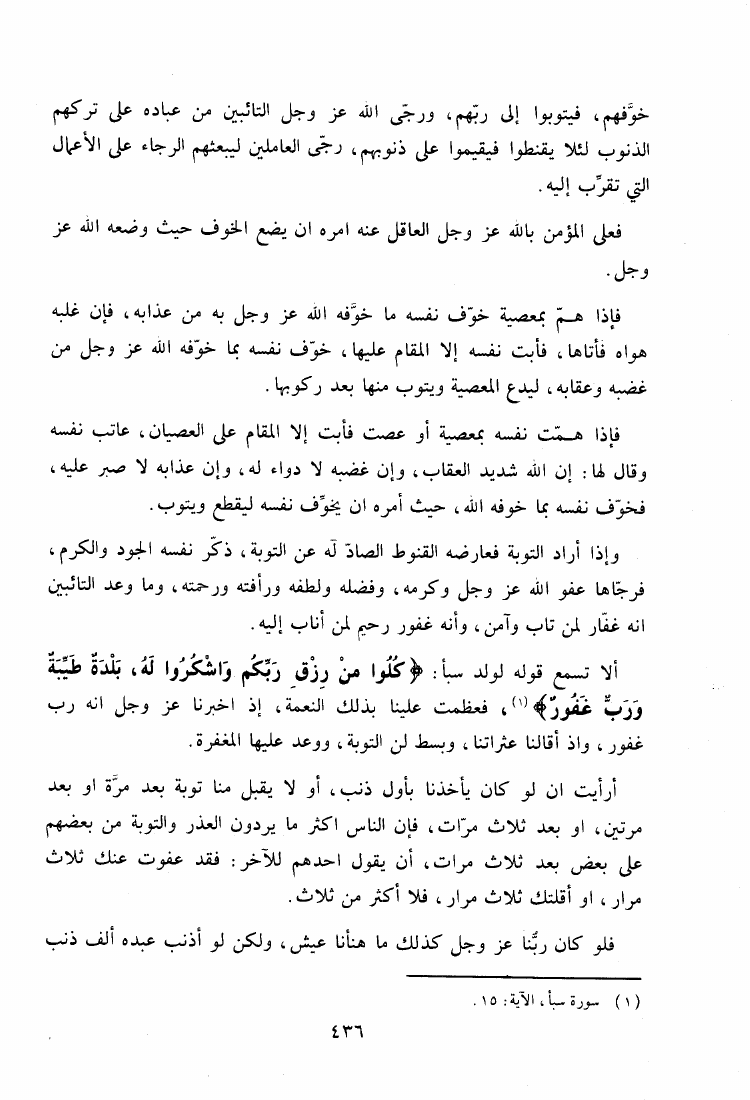 خوَّفهم، فيتوبوا إلى ربّهم، ورجّى الله عز وجل التائبين من عباده على تركهم
الذنوب لئلا يقنطوا فيقيموا على ذنوبهم، رجّى العاملين ليبعثهم الرجاء على الأعمال
التي تقرِّب إليه.
فعلى المؤمن بالله عز وجل العاقل عنه امره ان يضع الخوف حيث وضعه الله عز
وجل.
فإذا هـمّ بمعصية خوّف نفسه ما خوَّفه الله عز وجل به من عذابه، فإن غلبه
هواه فأتاها، فأبت نفسه إلا المقام عليها، خوّف نفسه بما خوّفه الله عز وجل من
غضبه وعقابه، ليدع المعصية ويتوب منها بعد ركوبها.
فإذا هـمّت نفسه بمعصية أو عصت فأبت إلا المقام على العصيان، عاتب نفسه
وقال لها: إن الله شديد العقاب، وإن غضبه لا دواء له، وإن عذابه لا صبر عليه،
فخوّف نفسه بما خوفه الله، حيث أمره ان يخوِّف نفسه ليقطع ويتوب.
وإذا أراد التوبة فعارضه القنوط الصادّ له عن التوبة، ذكّر نفسه الجود والكرم،
فرجّاها عفو الله عز وجل وكرمه، وفضله ولطفه ورأفته ورحمته، وما وعد التائبين
انه غفّار لمن تاب وآمن، وأنه غفور رحيم لمن أناب إليه.
ألا تسمع قوله لولد سبأ: ﴿كُلُوا مِنْ رِزْقِ رَبِّكُم وَاشْكُرُوا لَهُ، بَلْدَةٌ طَيِّبَةٌ
وَرَبٌّ غَفُورٌ﴾(١)، فعظمت علينا بذلك النعمة، إذ اخبرنا عز وجل انه رب
غفور، واذ أقالنا عثراتنا، وبسط لن التوبة، ووعد عليها المغفرة.
أرأيت ان لو كان يأخذنا بأول ذنب، أو لا يقبل منا توبة بعد مرَّة او بعد
مرتين، او بعد ثلاث مرّات، فإن الناس اكثر ما يردون العذر والتوبة من بعضهم
على بعض بعد ثلاث مرات، أن يقول احدهم للآخر: فقد عفوت عنك ثلاث
مرار، او أقلتك ثلاث مرار، فلا أكثر من ثلاث.
فلو كان ربُّنا عز وجل كذلك ما هنأنا عيش، ولكن لو أذنب عبده ألف ذنب
(١) سورة سبأ، الآية: ١٥.
٤٣٦